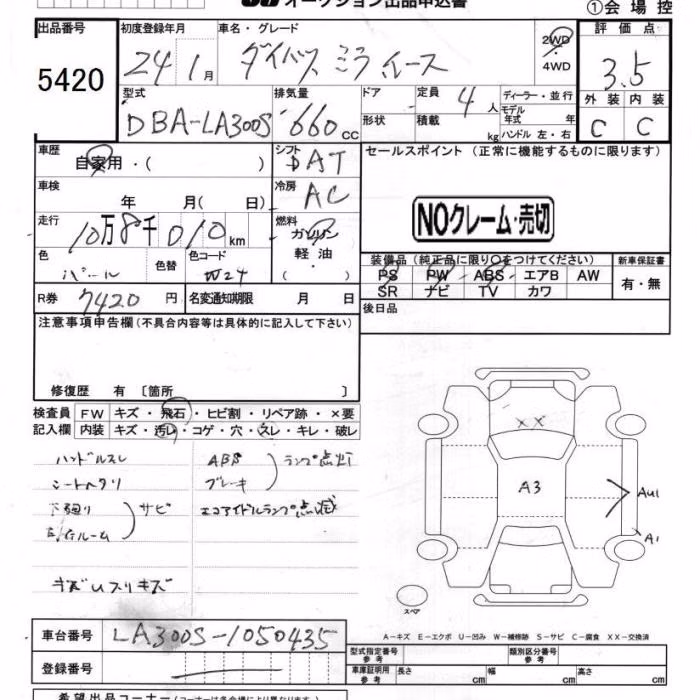 オークション出品申込書
①会場控
出品番号 初度登録年月 車名・グレード 評価点
5420 24 1月 ダイハツ ミラ イース 2WD 4WD 3.5
型式 排気量 ドア 定員 4人 ディーラー・並行 外装 内装
モデル年式 年
DBA-LA300S 660cc 形状 積載 kg ハンドル 左・右 C C
車歴 自家用・( ) シフト DAT セールスポイント (正常に機能するものに限ります)
車検 年 月( 日) 冷房 AC
NOクレーム・売切
走行 10万8千010km 燃料 ガソリン
軽油・( )
色 パール 色替 色コード W24
装備品(純正品に限り○をつけてください) 新車保証書
PS PW ABS エアB AW 有・無
SR ナビ TV カワ
R券 7420円 名変通知期限 月 日
後日品
注意事項申告欄(不具合内容等は具体的に記入して下さい)
修復歴 有 〔箇所 〕
検査員 FW キズ・飛石・ヒビ割・リペア跡・×要
記入欄 内装 キズ・汚レ・コゲ・穴・スレ・キレ・破レ
ハンドルスレ ABS ランプ点灯
シートヘタリ ブレーキ
下廻り サビ エコアイドルランプ点滅
ルーム
キズ
XX
A3
AU1
A1
スペア
A－キズ E－エクボ U－凹み W－補修跡 S－サビ C－腐食 XX－交換済
車台番号 LA300S-1050435
型式指定番号 参考 類別区分番号 参考
登録番号
車庫証明用 参考 長さ cm 幅 cm 高さ cm
希望出品コーナー